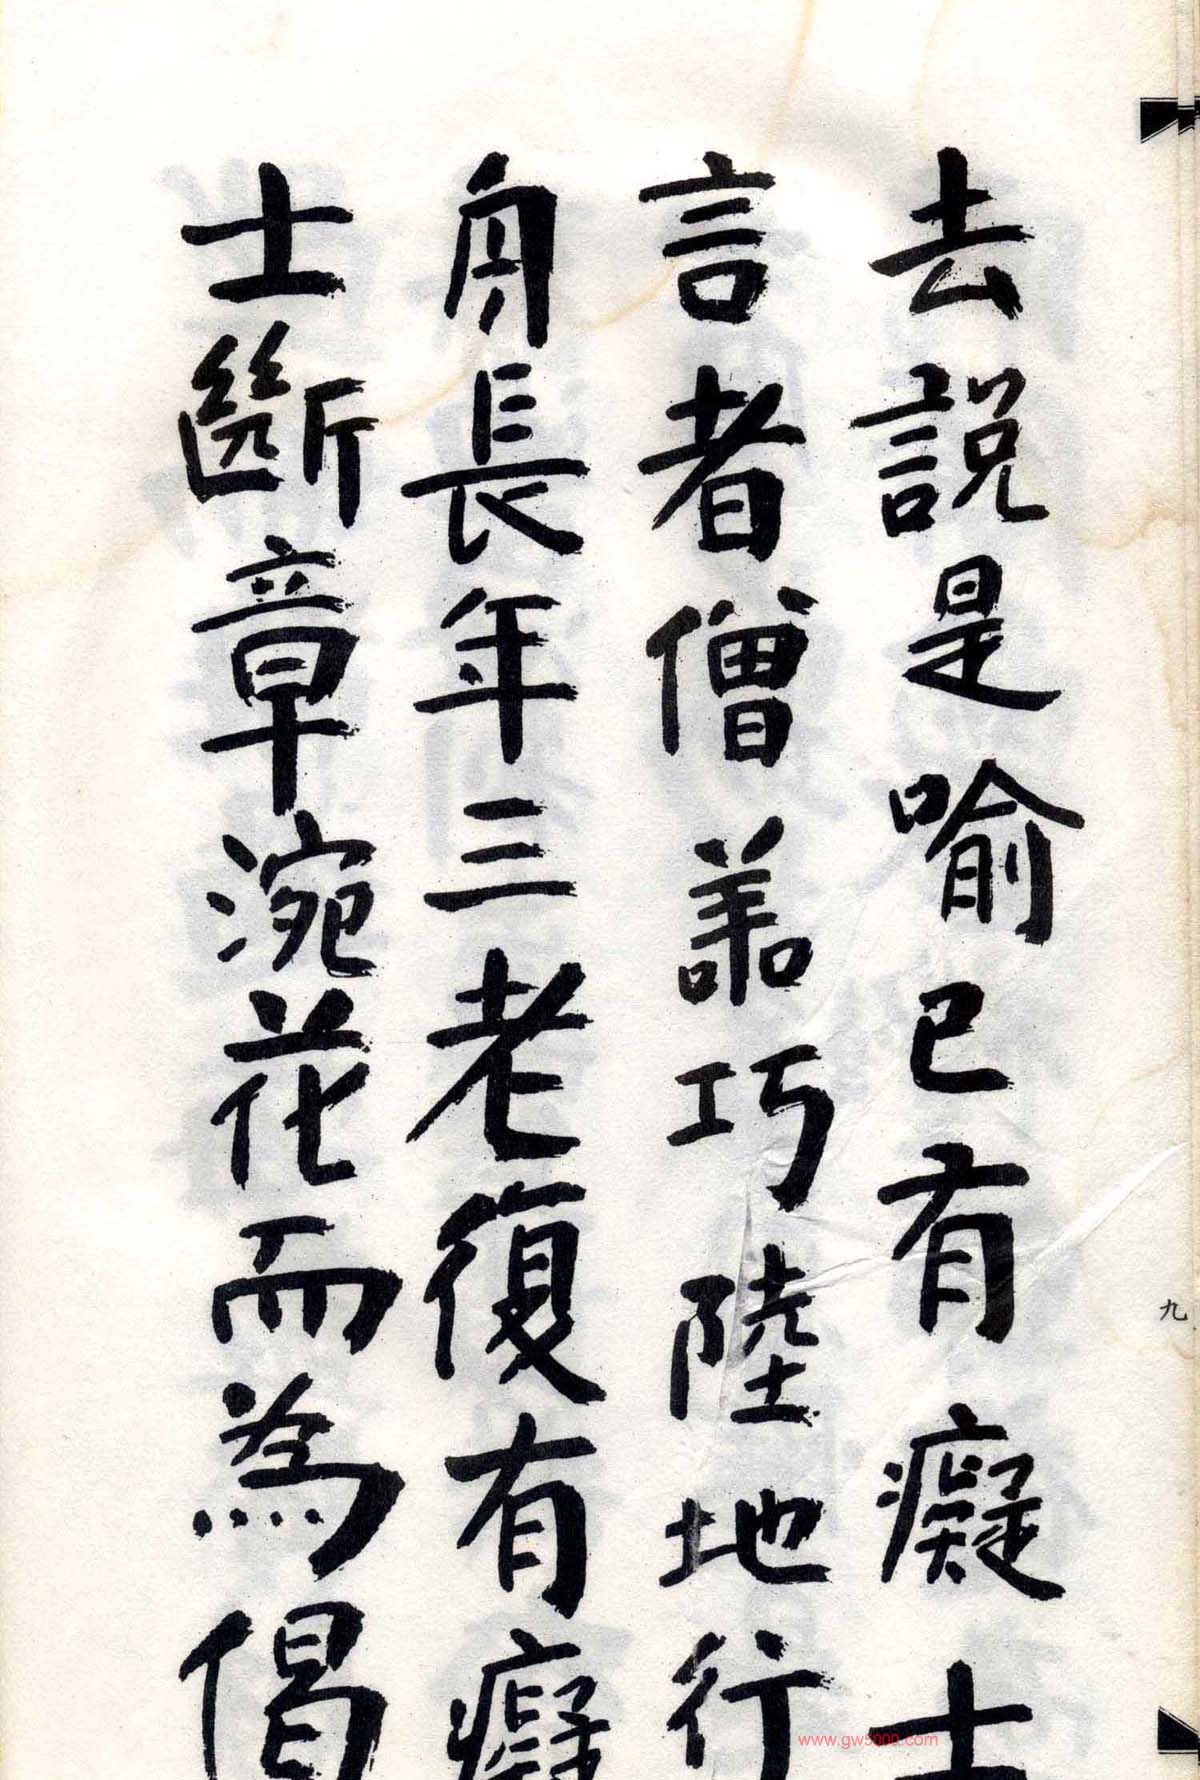 去說是喻已有癡士
言者僧善巧陸地行
舟長年三老復有癡
士斷章涴花而為偈
九
www.gw5000.com